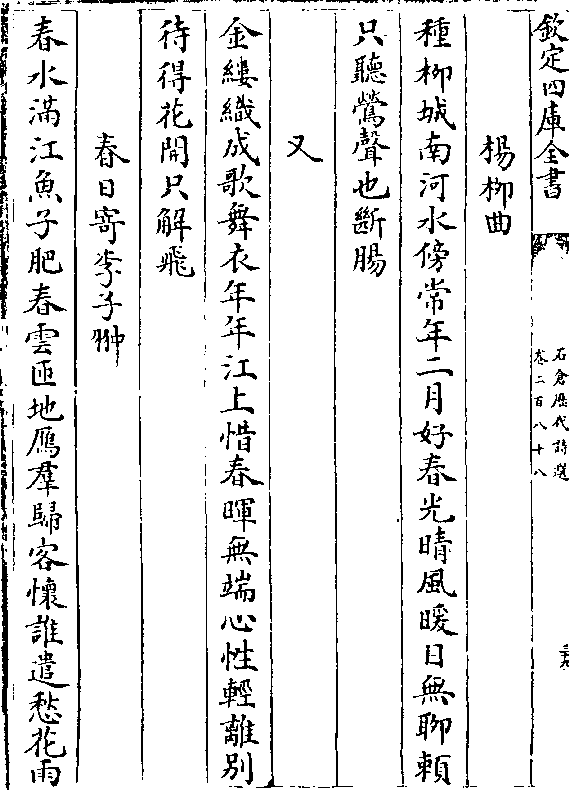 欽定四庫全書
石倉歷代詩選
卷二百八十八
楊柳曲
種柳城南河水傍常年二月好春光晴風暖日無聊賴
只聽鶯聲也斷腸
又
金縷織成歌舞衣年年江上惜春暉無端心性輕離別
待得花開只解飛
春日寄李子翀
春水滿江魚子肥春雲匝地鴈羣歸客懷誰遣愁花雨